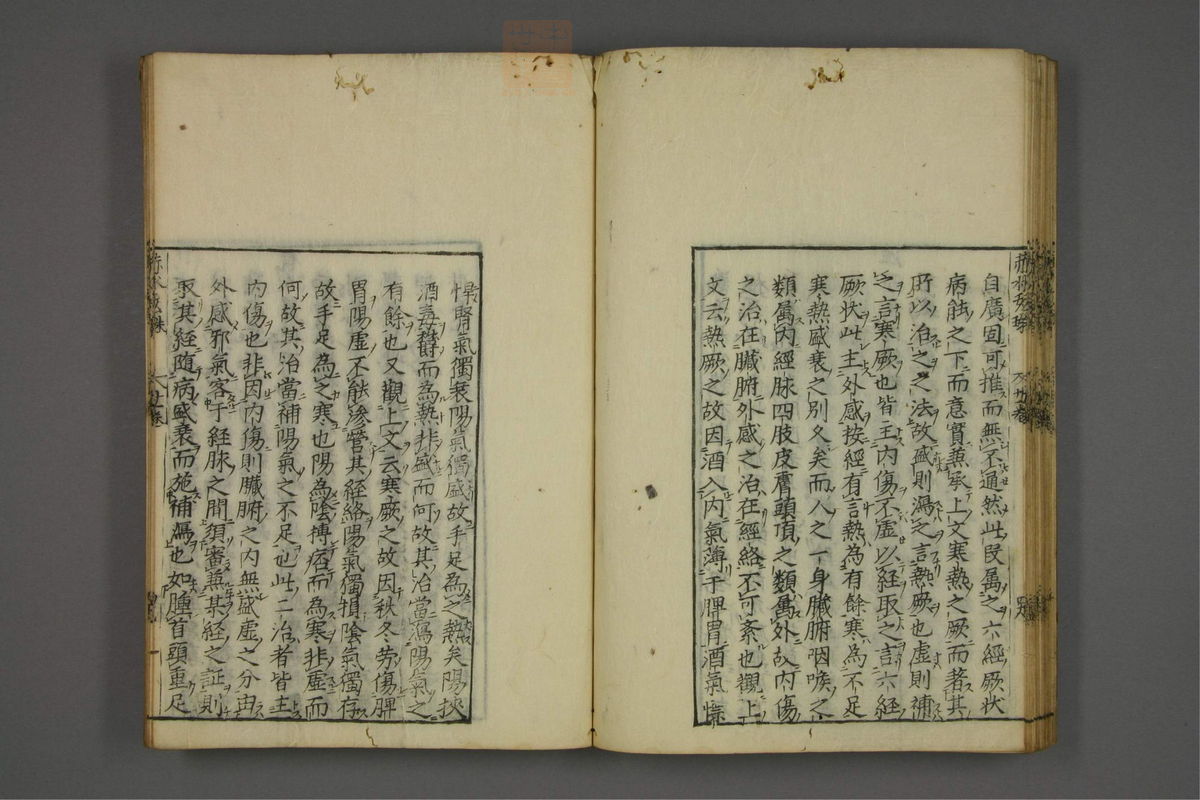 自廣固可推而無不通然此段属之六經厥状
病能之下而意實兼承上文寒熱之厥而著其
所以治之之法故盛則瀉之言熱厥也虛則補
之言寒厥也皆主内傷不虛以經取之言六經
厥状此主外感按經有言熱為有餘寒為不足
寒熱盛衰之別久矣而人之一身臟腑咽喉之
類属内經脉四肢皮膚頭頂之類属外故内傷
之治在臟腑外感之治在經絡不可紊也觀上
文云熱厥之故因酒入内氣薄于脾胃酒氣慓
悍腎氣獨衰陽氣獨盛故手足為之熱矣陽挾
酒毒欝而為熱非盛而何故其治當瀉陽氣之
有餘也又觀上文云寒厥之故因秋冬劳傷脾
胃陽虛不能滲營其經絡陽氣獨損陰氣獨存
故手足為之寒也陽為陰搏痞而為寒非虛而
何故其治當補陽氣之不足也此二治者皆主
内傷也非因内傷則臟腑之内無盛虛之分毋
外感邪氣客于經脉之間須審兼某經之証則
取其經随病盛衰而施補瀉也如腫首頭重足